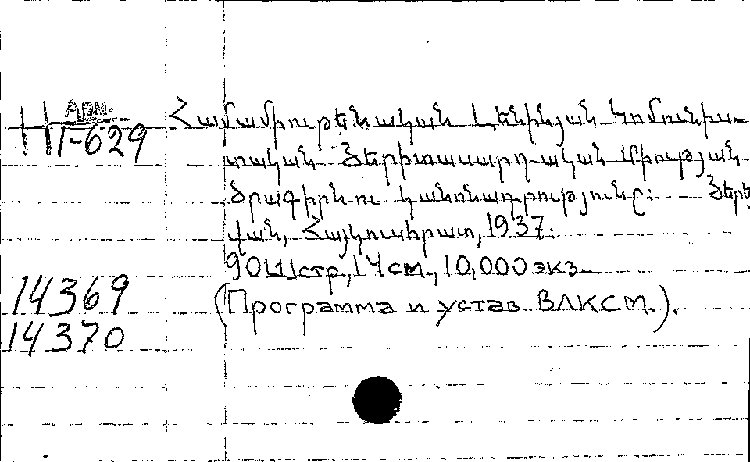 Арм.
III-629
Համամիութենական Լենինյան Կոմունիս-
տական Յերիտասարդական Միության
Ծրագիրն ու կանոնադրությունը: Յերե
վան, Հայկուսհրատ, 1937.
90 стр., 14 см., 10,000 экз.
14369
(Программа и устав ВЛКСМ.).
14370